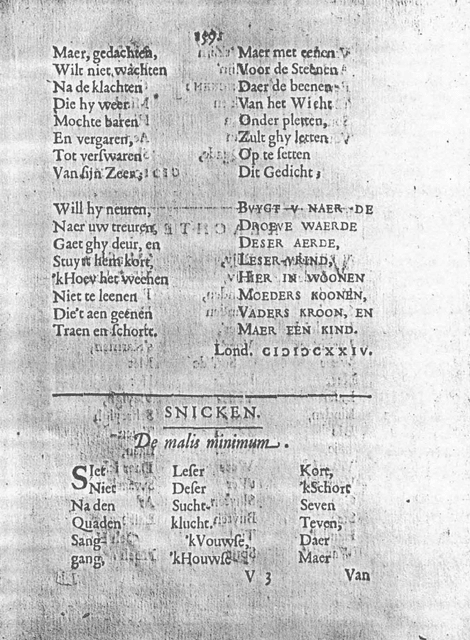 159.
Maer, gedachten,
Wilt niet wachten
Na de klachten
Die hy weer
Mochte baren
En vergaren,
Tot verswaren
Van sijn Zeer;
Will hy neuren,
Naer uw treuren,
Gaet ghy deur, en
Stuyt hem kort,
'kHoev het weenen
Niet te leenen
Die't aen geenen
Traen en schortt.
Maer met eenen
Voor de Steenen
Daer de beenen
Van het Wicht
Onder pletten,
Zult ghy letten
Op te setten
Dit Gedicht;
BVYGT V NAER DE
DROEVE WAERDE
DESER AERDE,
LESER-VRIND,
HIER IN WOONEN
MOEDERS KOONEN,
VADERS KROON, EN
MAER EEN KIND.
Lond. CIↃIↃCXXIV.
SNICKEN.
De malis minimum.
SIet Leser Kort,
Niet Deser 'kSchort
Na den Sucht- Seven
Quaden klucht. Teven;
Sang- 'kVouwse, Daer
gang, 'kHouwse Maer
V 3 Van